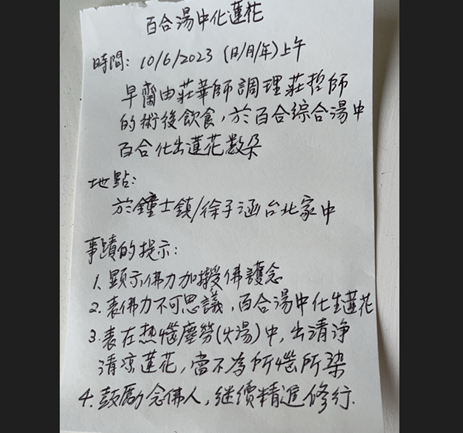 百合湯中化蓮花
時間: 10/6/2023 (日/月/年)上午
早齋由莊華師調理莊哲師
的術後飲食,於百合綜合湯中
百合化出蓮花数朵
地點:
於鐘士鎮/徐子涵台北家中
事蹟的提示:
1. 顯示佛力加披佛護念
2. 表佛力不可思議,百合湯中化生蓮花
3. 表在热惱塵勞(火湯)中,出清净
清凉蓮花,當不為所惱所染
4. 鼓勵念佛人,继續精進修行.